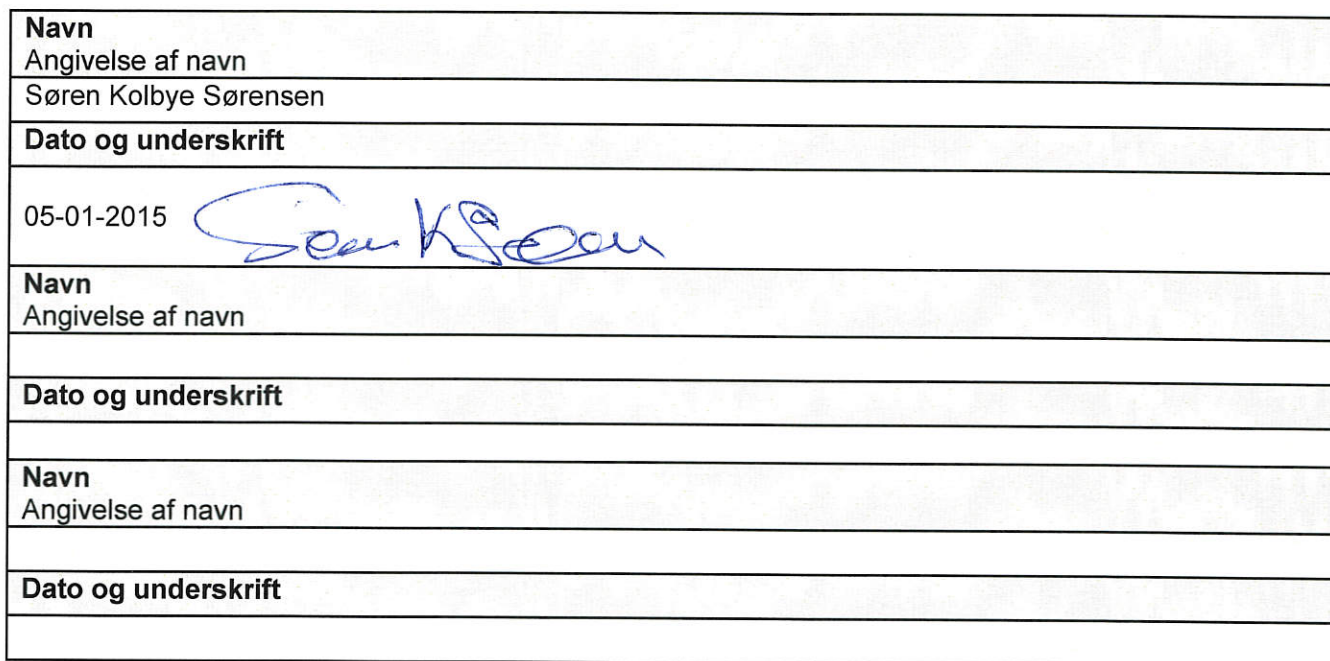 Navn
Angivelse af navn
Søren Kolbye Sørensen
Dato og underskrift
05-01-2015
Navn
Angivelse af navn
Dato og underskrift
Navn
Angivelse af navn
Dato og underskrift